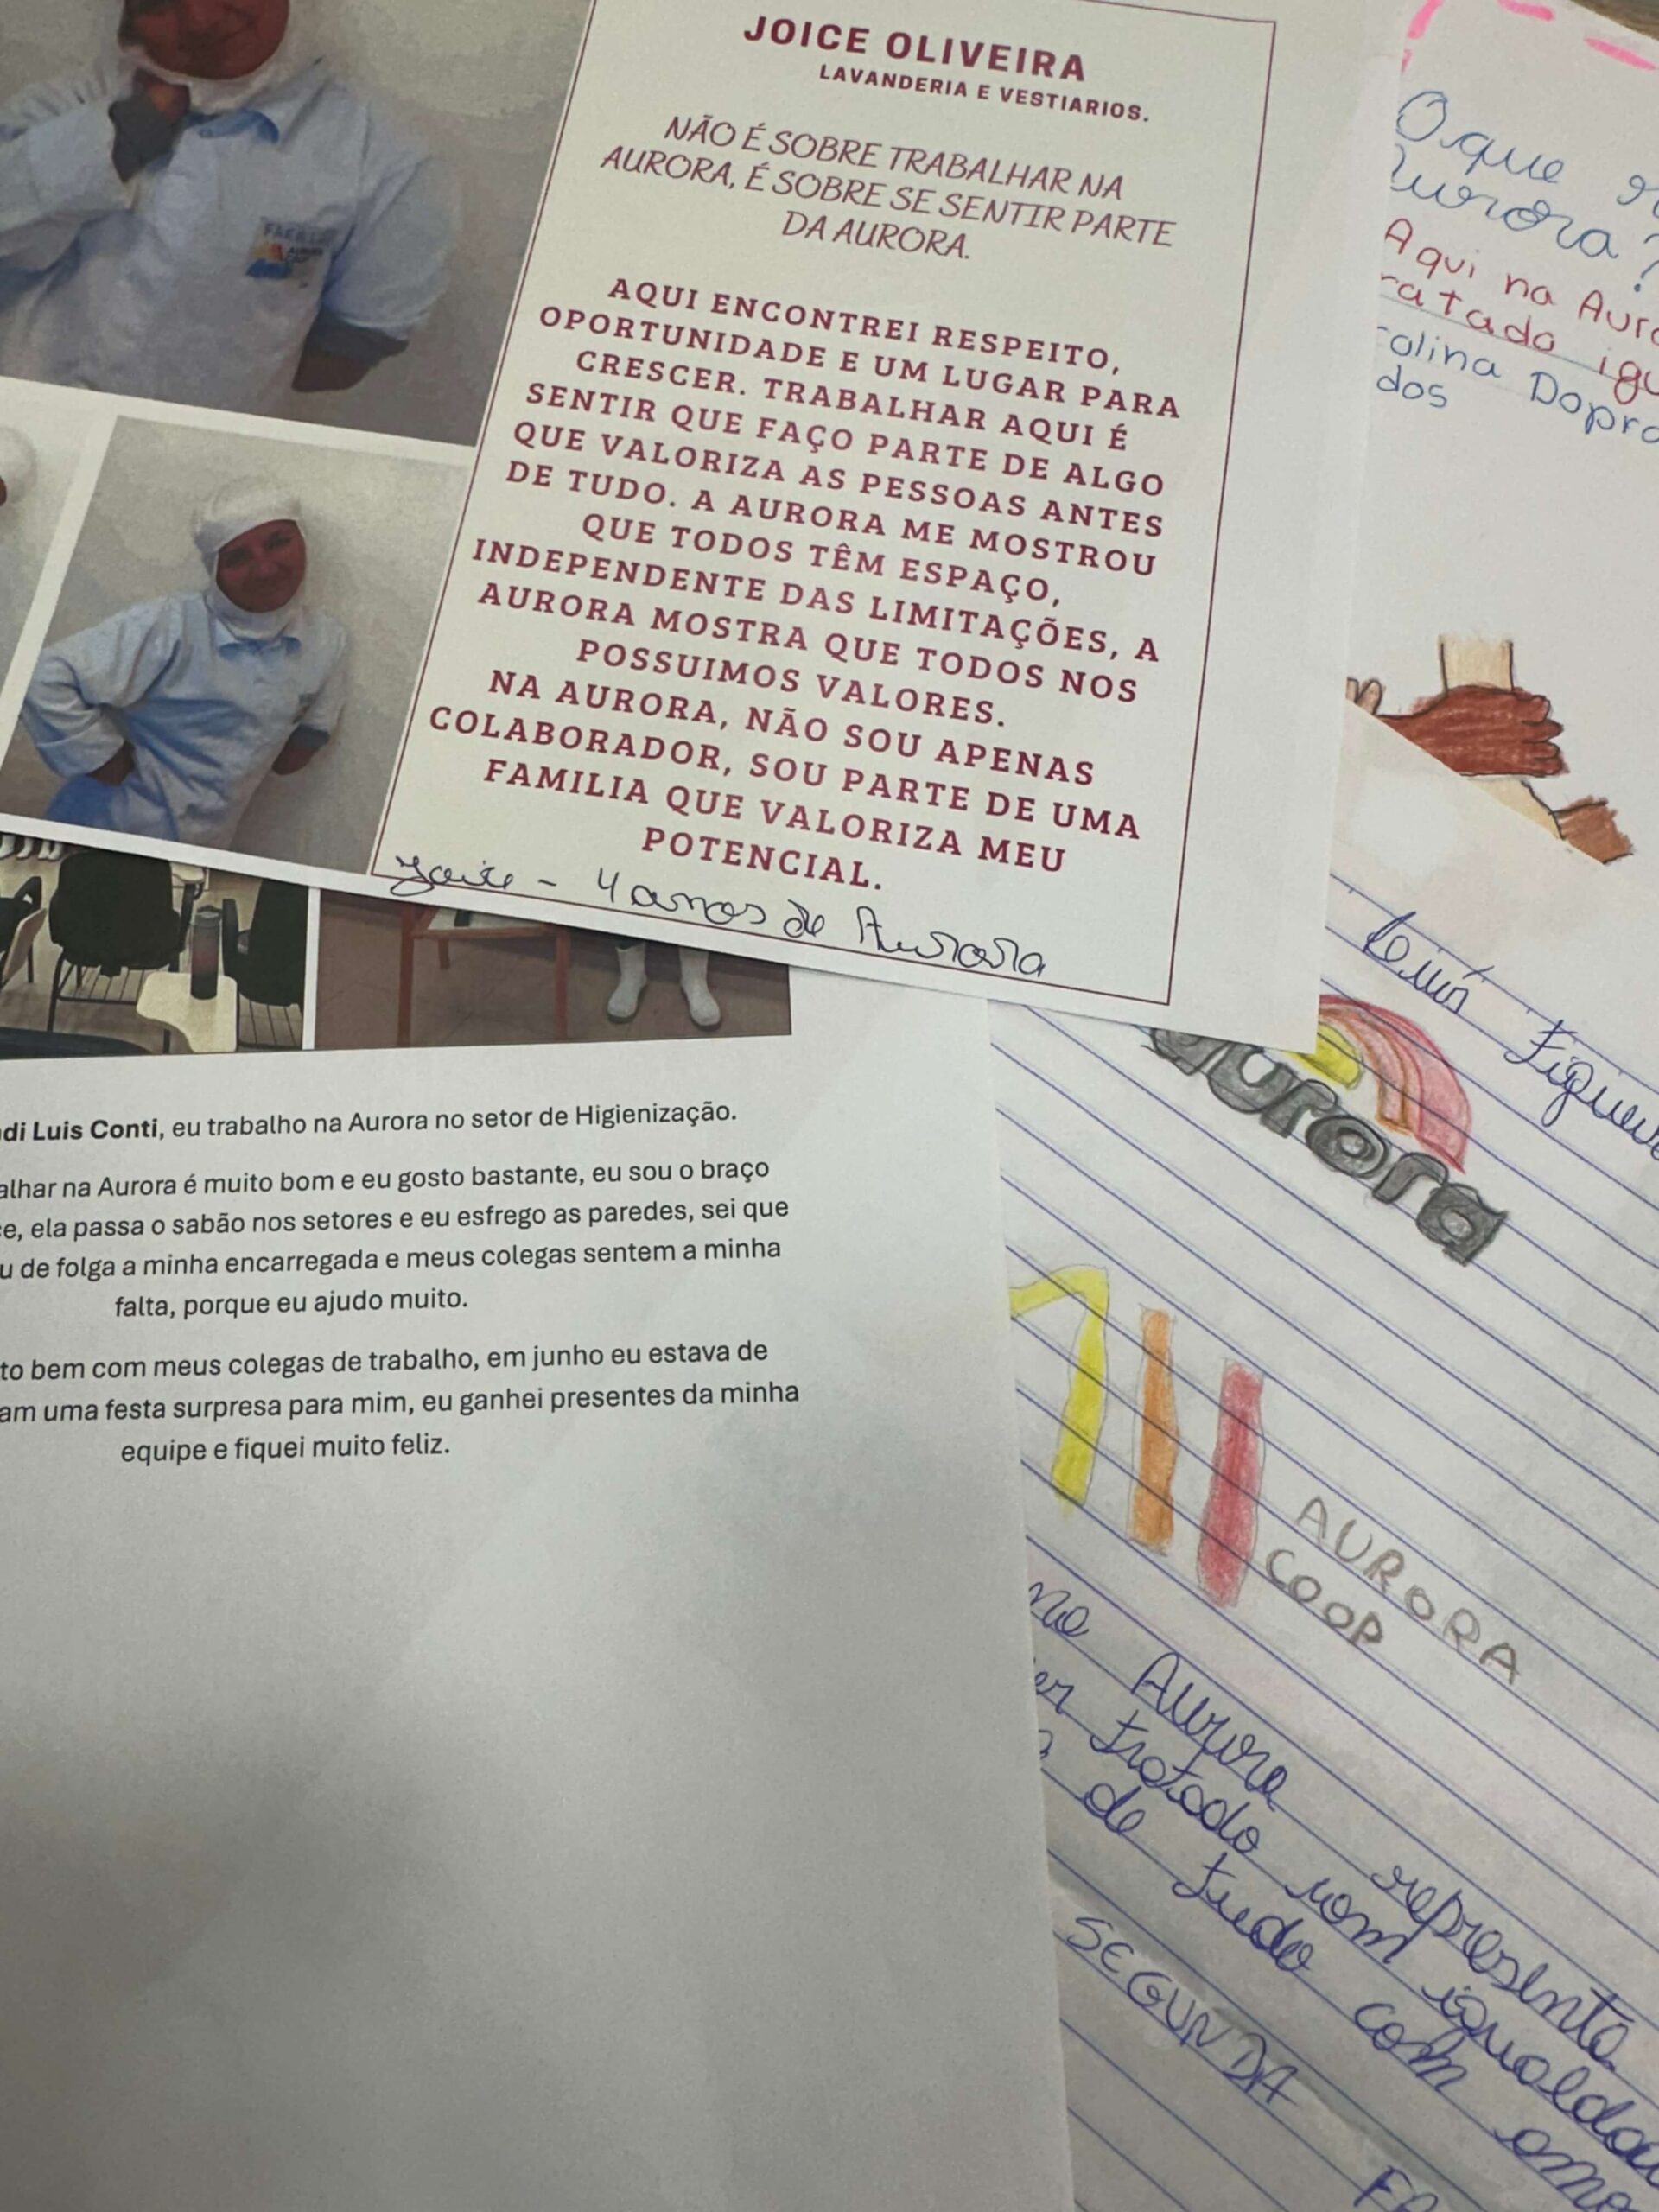 JOICE OLIVEIRA
LAVANDERIA E VESTIARIOS.
NÃO É SOBRE TRABALHAR NA
AURORA, É SOBRE SE SENTIR PARTE
DA AURORA.
AQUI ENCONTREI RESPEITO,
OPORTUNIDADE E UM LUGAR PARA
CRESCER. TRABALHAR AQUI É
SENTIR QUE FAÇO PARTE DE ALGO
QUE VALORIZA AS PESSOAS ANTES
DE TUDO. A AURORA ME MOSTROU
QUE TODOS TÊM ESPAÇO,
INDEPENDENTE DAS LIMITAÇÕES, A
AURORA MOSTRA QUE TODOS NOS
POSSUIMOS VALORES.
NA AURORA, NÃO SOU APENAS
COLABORADOR, SOU PARTE DE UMA
FAMILIA QUE VALORIZA MEU
POTENCIAL.
Joice - 4 anos de Aurora
di Luis Conti, eu trabalho na Aurora no setor de Higienização.
alhar na Aurora é muito bom e eu gosto bastante, eu sou o braço
e, ela passa o sabão nos setores e eu esfrego as paredes, sei que
u de folga a minha encarregada e meus colegas sentem a minha
falta, porque eu ajudo muito.
to bem com meus colegas de trabalho, em junho eu estava de
am uma festa surpresa para mim, eu ganhei presentes da minha
equipe e fiquei muito feliz.
O que
Aurora?
Aqui na Auro
ratado igu
alina Dopra
dos
aurora
AURORA
COOP
na Aurora representa
er tratado com igualda
de tudo com
SEGUNDA